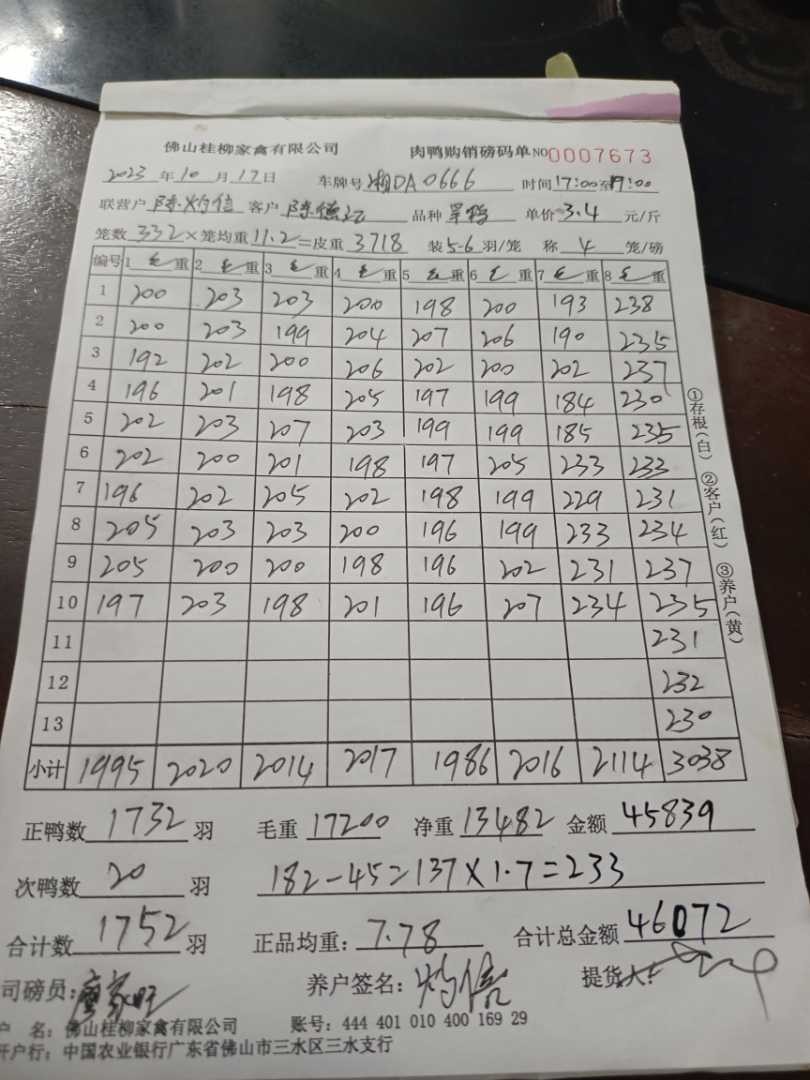 佛山桂柳家禽有限公司 肉鸭购销磅码单 NO 0007673
2023 年 10 月 17 日 车牌号 湘DA0666 时间 17:00至19:00
联营户 陈灼信 客户 陈德 品种 单价 3.4 元/斤
笼数 332 ×笼均重 11.2 =皮重 3718 装 5-6 羽/笼 称 4 笼/磅
编号 1 毛 重 2 毛 重 3 毛 重 4 毛 重 5 毛 重 6 毛 重 7 毛 重 8 毛 重
1 200 203 203 200 198 200 193 238
2 200 203 199 204 207 206 190 235
3 192 202 200 206 202 200 202 237
4 196 201 198 205 197 199 184 230
5 202 203 207 203 199 199 185 235
6 202 200 201 198 197 205 233 233
7 196 202 205 202 198 199 229 231
8 205 203 203 200 196 199 233 234
9 205 200 200 198 196 202 231 237
10 197 203 198 201 196 207 234 235
11 231
12 232
13 230
小计 1995 2020 2014 2017 1986 2016 2114 3038
①存根(白) ②客户(红) ③养户(黄)
正鸭数 1732 羽 毛重 17200 净重 13482 金额 45839
次鸭数 20 羽 182-45=137×1.7=233
合计数 1752 羽 正品均重: 7.78 合计总金额 46072
司磅员: 养户签名: 灼信 提货人:
户 名: 佛山桂柳家禽有限公司 账号: 444 401 010 400 169 29
开户行: 中国农业银行广东省佛山市三水区三水支行